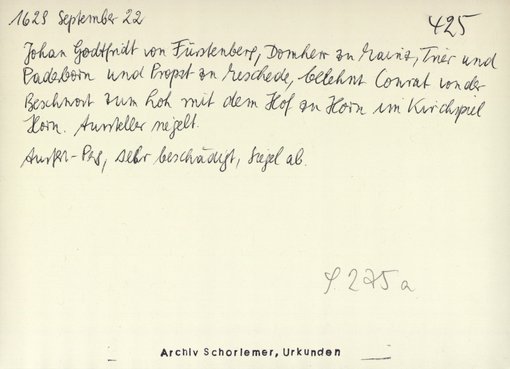 1623 September 22
425
Johan Godtfridt von Fürstenberg, Domherr zu Mainz, Trier und
Paderborn und Propst zu Meschede, belehnt Conrat von der
Beschwort zum Loh mit dem Hof zu Horn im Kirchspiel
Horn. Aussteller siegelt.
Ausf.-Perg., sehr beschädigt, Siegel ab.
275a
Archiv Schorlemer, Urkunden